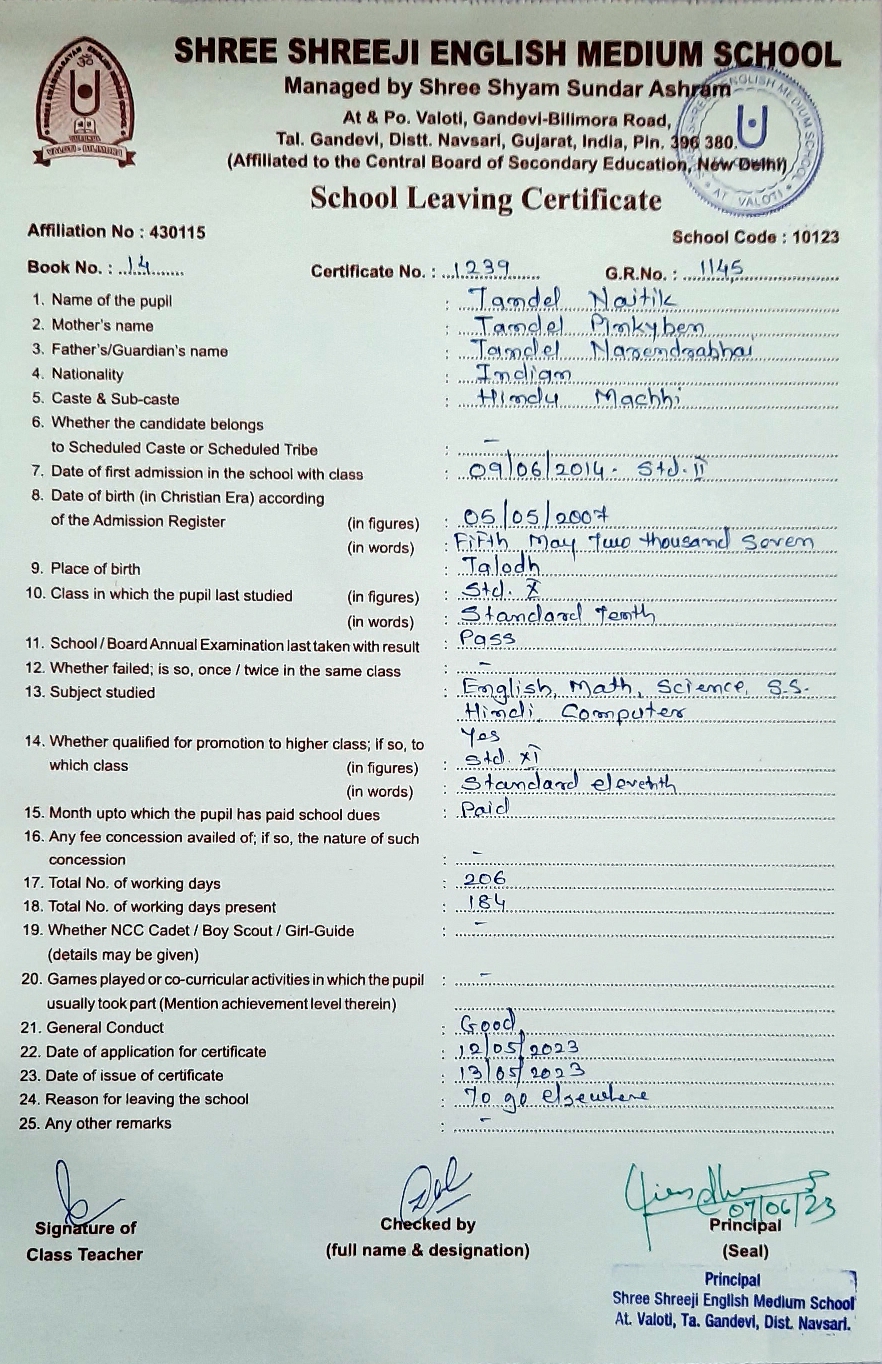 SHREE SHREEJI ENGLISH MEDIUM SCHOOL
Managed by Shree Shyam Sundar Ashram
At & Po. Valoti, Gandevi-Bilimora Road,
Tal. Gandevi, Distt. Navsari, Gujarat, India, Pin. 396 380.
(Affiliated to the Central Board of Secondary Education, New Delhi)
School Leaving Certificate
Affiliation No : 430115
School Code : 10123
Book No. : 14 Certificate No. : 1239 G.R.No. : 1145
1. Name of the pupil : Tandel Naitik
2. Mother's name : Tandel Pinkyben
3. Father's/Guardian's name : Tandel Narendrabhai
4. Nationality : Indian
5. Caste & Sub-caste : Hindu Machhi
6. Whether the candidate belongs
to Scheduled Caste or Scheduled Tribe : -
7. Date of first admission in the school with class : 09/06/2014 - Std. II
8. Date of birth (in Christian Era) according
of the Admission Register (in figures) : 05/05/2007
(in words) : Fifth May Two thousand Seven
9. Place of birth : Talodh
10. Class in which the pupil last studied (in figures) : Std. X
(in words) : Standard Tenth
11. School / Board Annual Examination last taken with result : Pass
12. Whether failed; is so, once / twice in the same class : -
13. Subject studied : English, Math, Science, S.S.
Hindi, Computer
14. Whether qualified for promotion to higher class; if so, to Yes
which class (in figures) : Std. XI
(in words) : Standard eleventh
15. Month upto which the pupil has paid school dues : Paid
16. Any fee concession availed of; if so, the nature of such
concession : -
17. Total No. of working days : 206
18. Total No. of working days present : 184
19. Whether NCC Cadet / Boy Scout / Girl-Guide : -
(details may be given)
20. Games played or co-curricular activities in which the pupil : -
usually took part (Mention achievement level therein)
21. General Conduct : Good
22. Date of application for certificate : 12/05/2023
23. Date of issue of certificate : 13/05/2023
24. Reason for leaving the school : To go elsewhere
25. Any other remarks : -
07/06/23
Signature of Checked by Principal
Class Teacher (full name & designation) (Seal)
Principal
Shree Shreeji English Medium School
At. Valoti, Ta. Gandevi, Dist. Navsari.